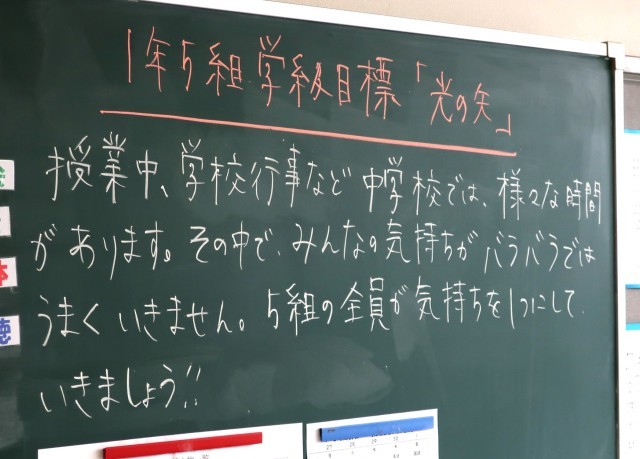 1年5組学級目標「光の矢」
授業中、学校行事など中学校では、様々な時間
があります。その中で、みんなの気持ちがバラバラでは
うまくいきません。5組の全員が気持ちを1つにして
いきましょう!!